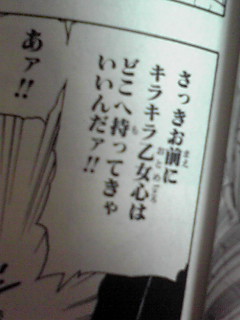 さっきお前に
キラキラ乙女心は
どこへ持ってきゃ
いいんだァ!!
あァ!!